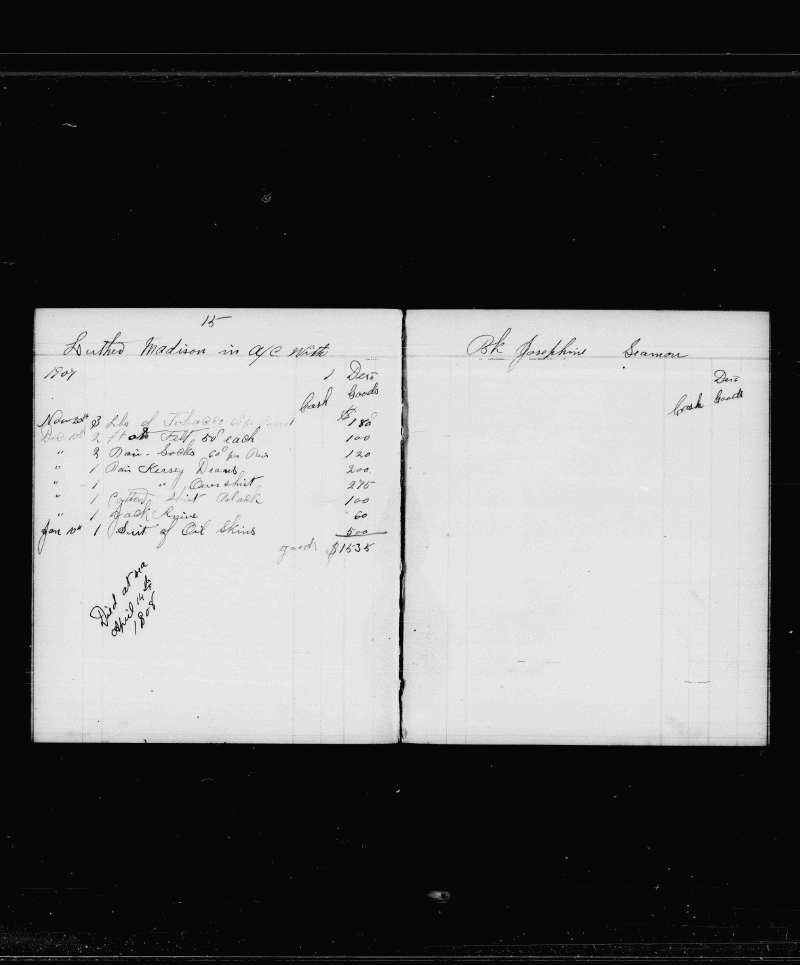 15
Luther Madison in a/c With
1907 1 Derc
Cash Goods
Nov 20th 3 Lbs of Tobacco 60 per Pound $ 180
Dec 10th 2 Felt 50 each 100
" 2 Pair Socks 60 per Pair 120
" 1 Pair Kersey Draws 200
" 1 " Overshirt 275
" 1 Cotton Shirt Black 100
" 1 Jack Knive 60
Jan 10th 1 Suit of Oil Skins 500
goods $1535
Died at sea
April 14th
1808
Bk Josephine Seamon
Derc
Cash Goods